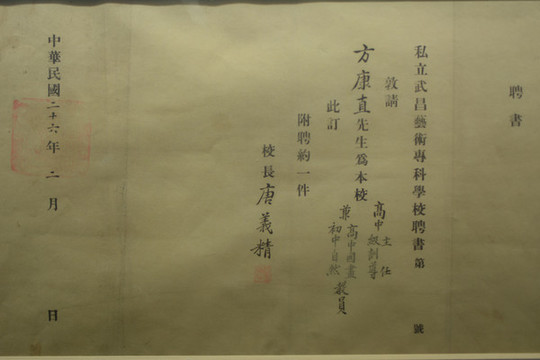 聘書
私立武昌藝術專科學校聘書第 號
敦請
方康直先生為本校
高中主任
級訓導
兼高中圖畫
初中自然教員
此訂
附聘約一件
校長唐義精
中華民國二十六年二月 日